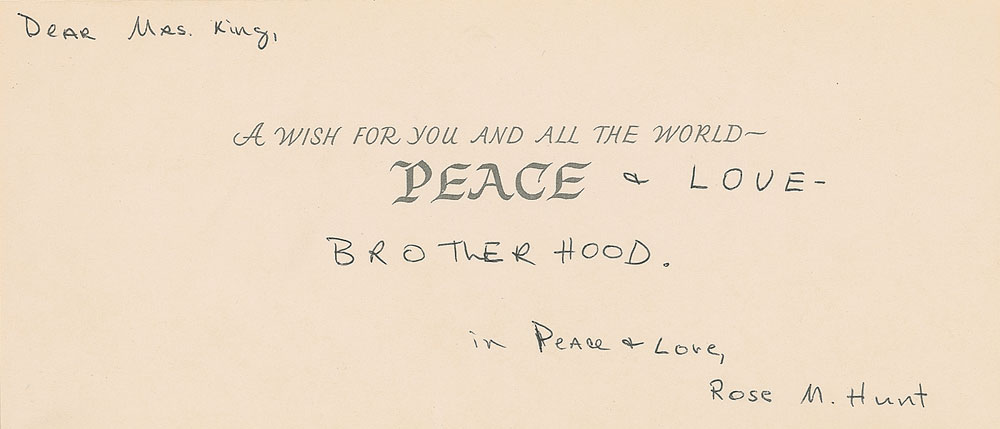 Dear Mrs. King,
A WISH FOR YOU AND ALL THE WORLD—
PEACE & LOVE-
BROTHERHOOD.
in Peace & Love,
Rose M. Hunt